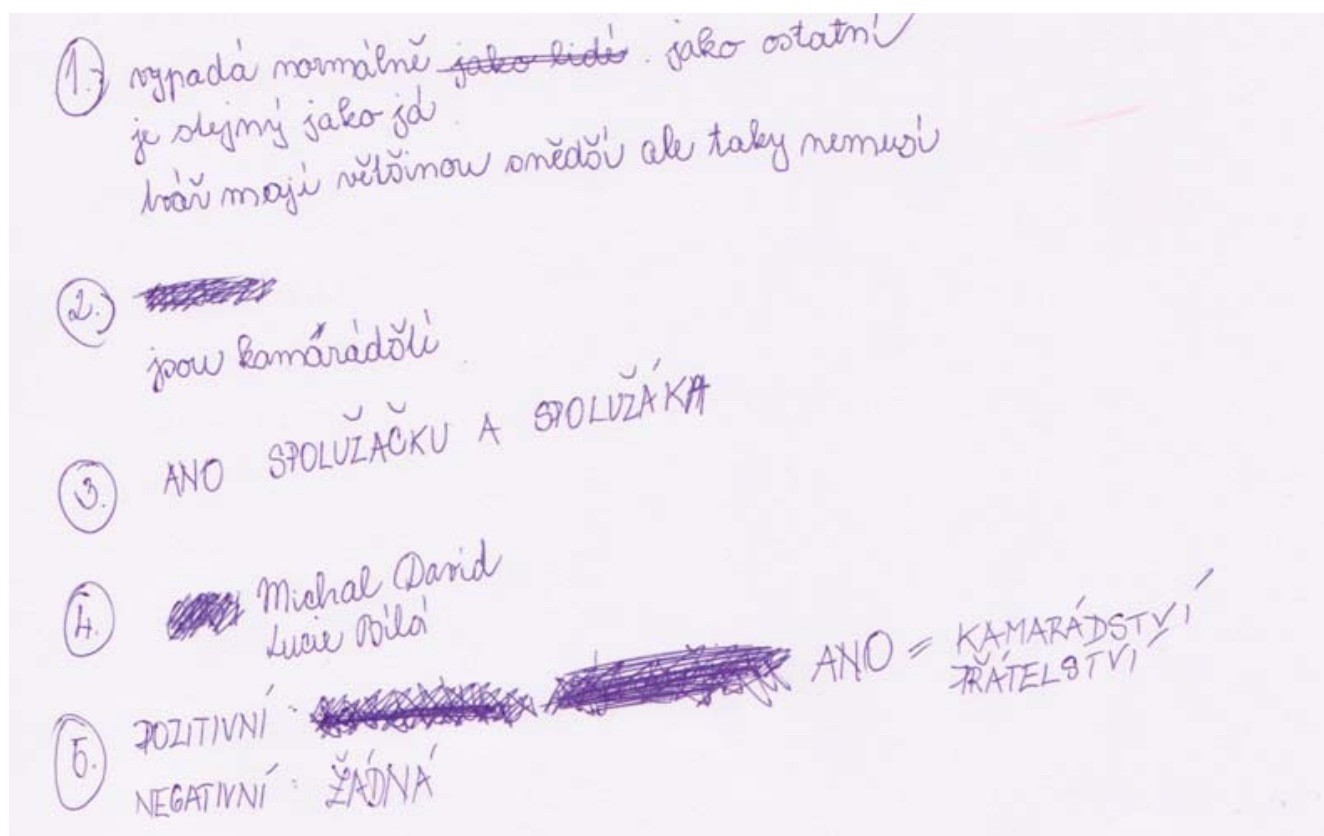 1. vypadá normálně jako lidé. jako ostatní
je stejný jako já
tvář mají většinou snědší ale taky nemusí
2.
jsou kamárádští
3. ANO SPOLUŽAČKU A SPOLUŽÁKA
4. Michal David
Lucie Bílá
5. POZITIVNÍ: ANO = KAMARÁDSTVÍ
PŘÁTELSTVÍ
NEGATIVNÍ: ŽÁDNÁ